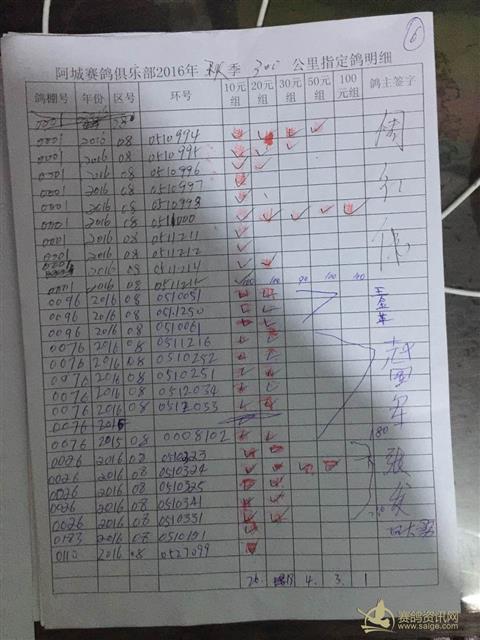 6
阿城赛鸽俱乐部2016年秋季300公里指定鸽明细
鸽棚号 年份 区号 环号 10元组 20元组 30元组 50元组 100元组 鸽主签字
0001 2016 08 0510994
0001 2016 08 0510995
0001 2016 08 0510996
0001 2016 08 0510997
0001 2016 08 0510998
0001 2016 08 0511000
0001 2016 08 0511211
0001 2016 08 0511212
0001 2016 08 0511214
0001 2016 08 0511215
0096 2016 08 0510051
0096 2016 08 0511250
0096 2016 08 0510061
0076 2016 08 0511216
0076 2016 08 0510252
0076 2016 08 0510251
0076 2016 08 0512034
0076 2016 08 0512053
0076 2016
0076 2015 08 0008102
180
0026 2016 08 0510323
0026 2016 08 0510324 张
0026 2016 08 0510325
0026 2016 08 0510341 发
0026 2016 08 0510331
0183 2016 08 0510151
0110 2016 08 0527099
26 4 3 1
赛鸽资讯网
www.saige.com